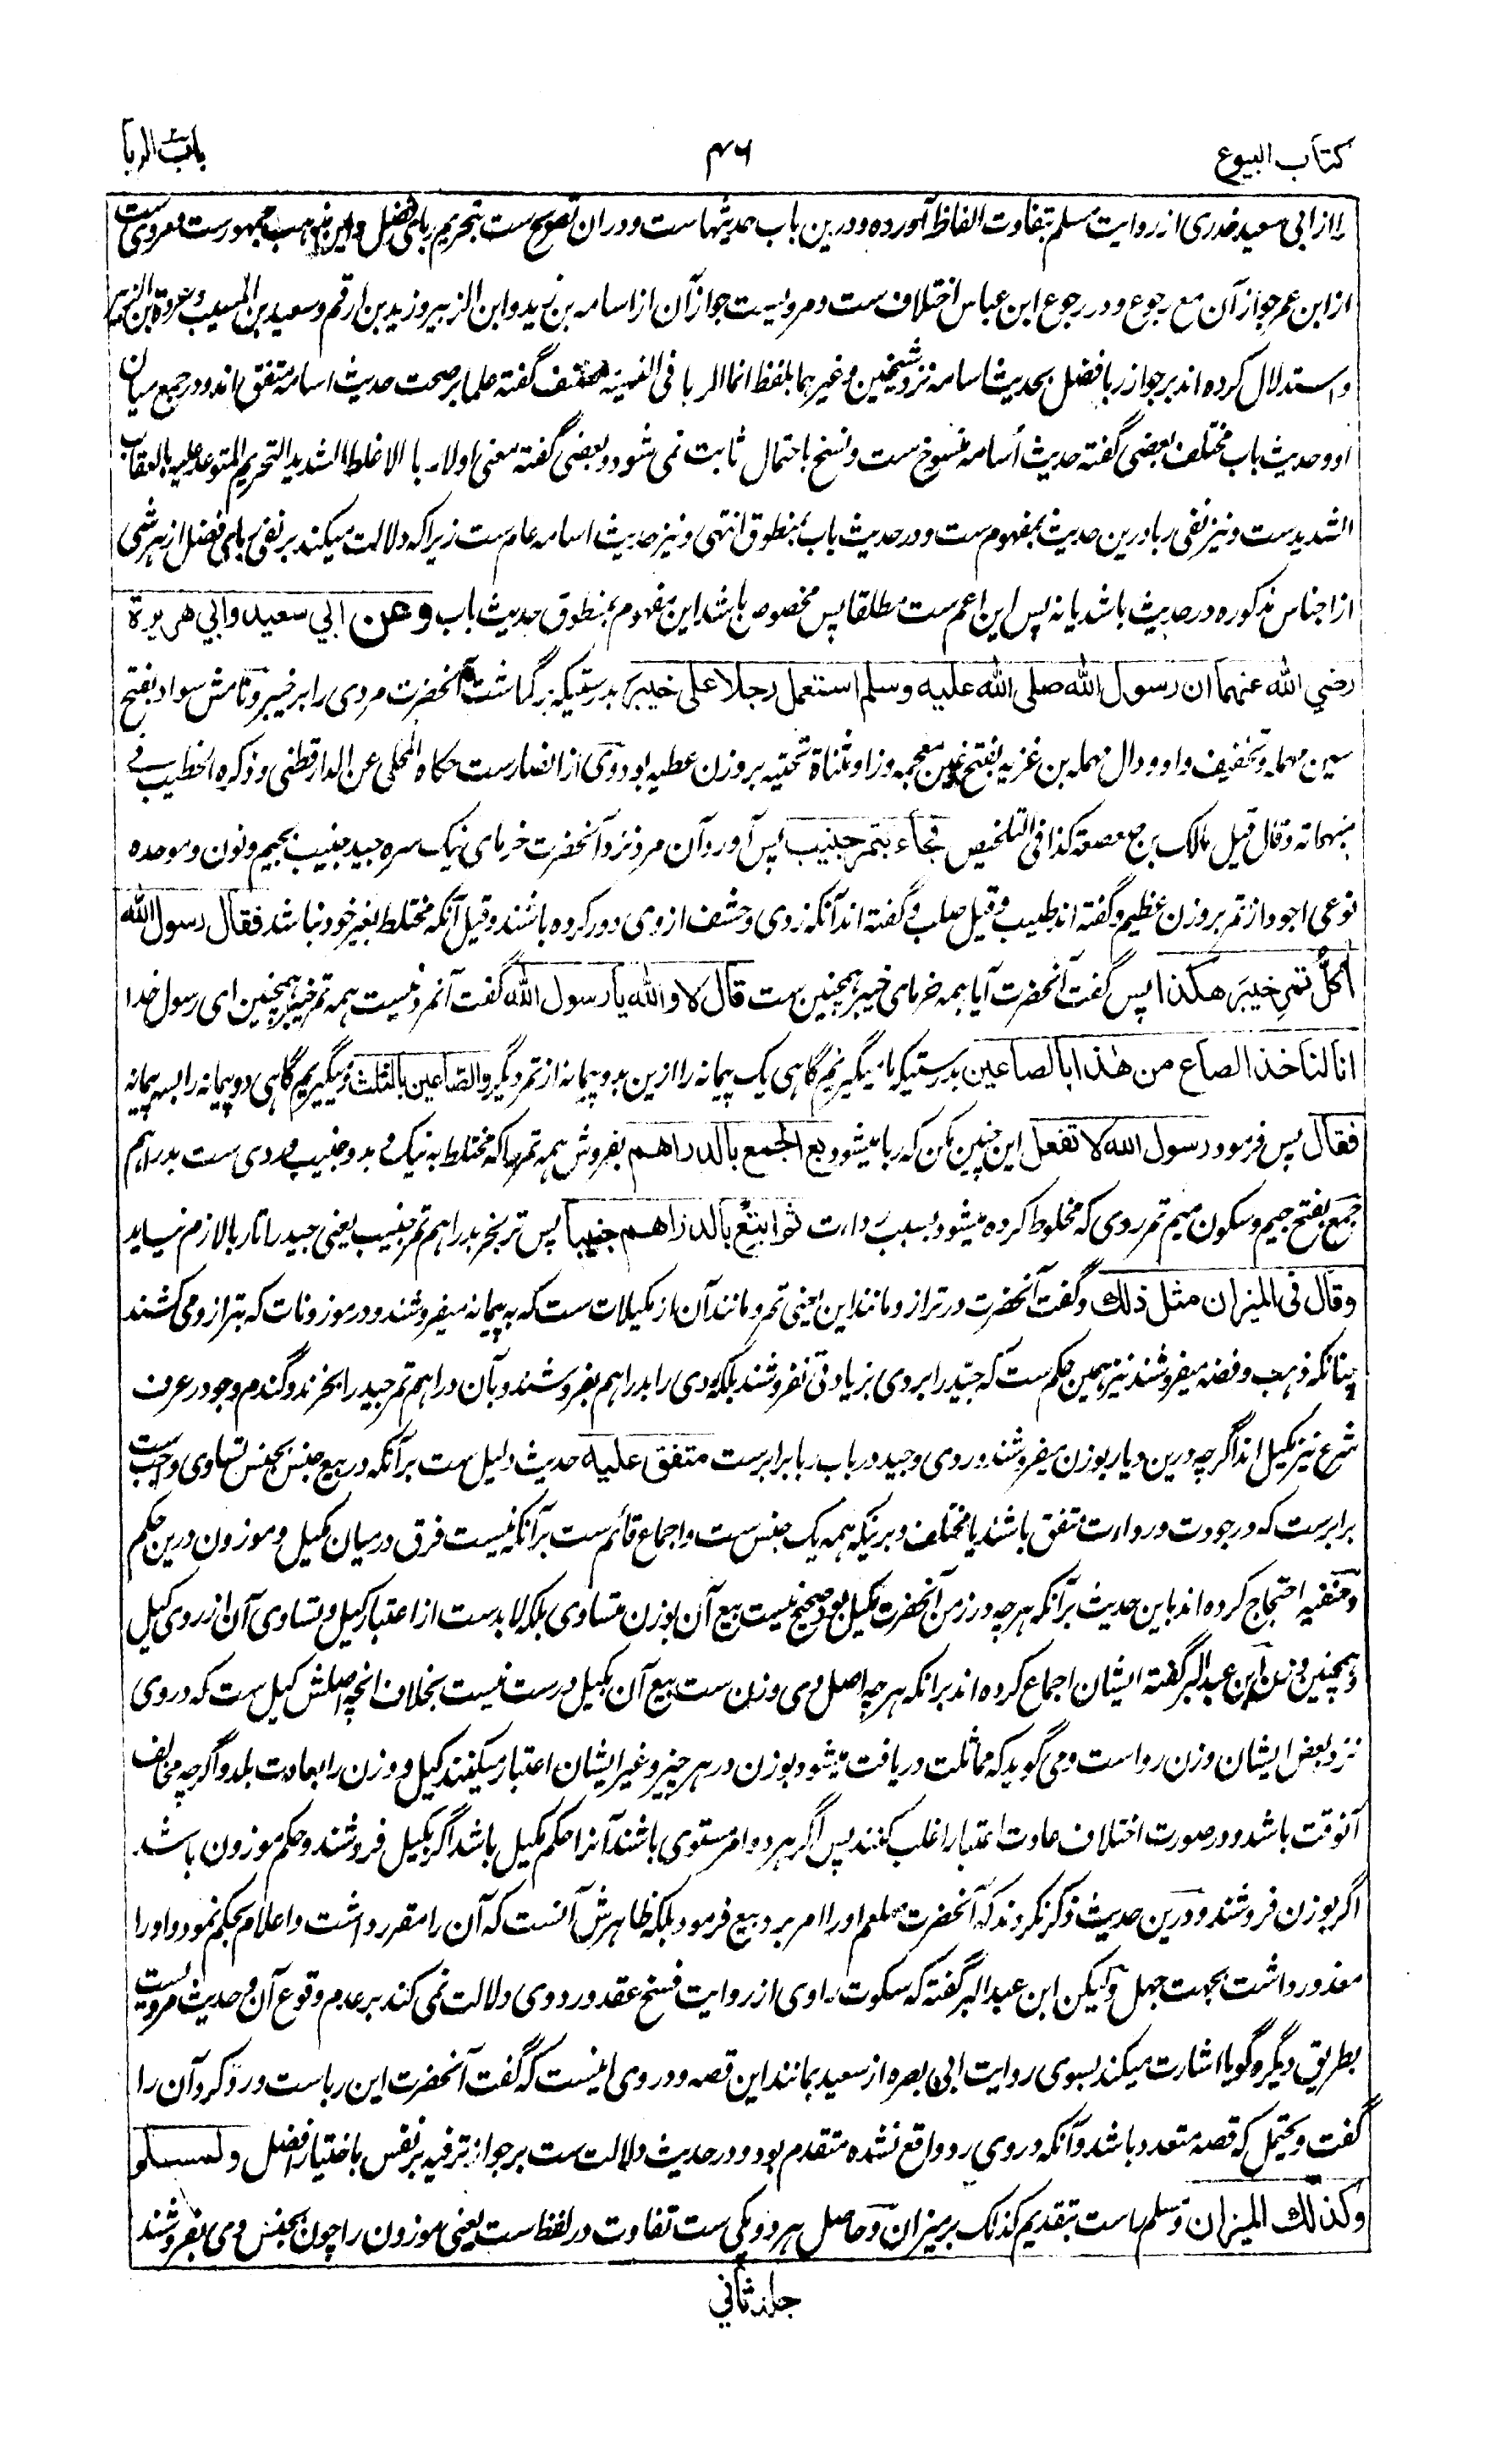 کتاب البیوع
۴۶
باب الربا
را از ابی سعید خدری از روایت مسلم بتفاوت الفاظ آورده و درین باب حدیثهاست و دران تصریح ست بتحریم ربای فضل و این مذهب جمهورست و مروی ست
از ابن عمر جواز آن مع رجوع و در رجوع ابن عباس اختلاف ست و مرویست جواز آن از اسامه بن زید و ابن الزبیر و زید بن ارقم و سعید بن المسیب و عروة بن الزبیر
و استدلال کرده اند بر جواز ربا فضل بحدیث اسامه نزد شیخین و غیرهما بلفظ انما الربا فی النسیئة مصنف گفته علما بر صحت حدیث اسامه متفق اند و در جمع میان
او و حدیث باب مختلف بعضی گفته حدیث اسامه منسوخ ست و نسخ باحتمال ثابت نمی شود و بعضی گفته معنی او لا ربا الا غلظ الشدید التحریم المتوعد علیه بالعقاب
الشدیدست و نیز نفی ربا درین حدیث بمفهوم ست و در حدیث باب بمنطوق انتهی و نیز حدیث اسامه عام ست زیرا که دلالت میکند بر نفی ربای فضل از هر شی
از اجناس مذکوره در حدیث باشد یا نه پس این اعم ست مطلقا پس مخصوص باشد این مفهوم بمنطوق حدیث باب وعن ابي سعيد وابي هريرة
رضي الله عنهما ان رسول الله صلى الله عليه وسلم استعمل رجلا على خيبر بدرستیکه برگماشت آنحضرت مردی را بر خیبر و نامش سواد بفتح
سین مهمله و تخفیف واو و دال مهمله بن غزیه بفتح غین معجمه و زا و مثناة تحتیه بر وزن عطیه بود وی از انصارست حکاه المحلی عن الدارقطنی و ذکره الخطیب فی
مبهماته و قال قیل مالک بن صعصعة کذا فی التلخیص فجاء بتمر جنيب پس آورد آن مرد نزد آنحضرت خرمای نیک سره جید جنیب بجیم و نون و موحده
نوعی اجود از تمر بر وزن عظیم و گفته اند طیب و قیل صلب و گفته اند آنکه ردی و حشف از وی دور کرده باشند و قیل آنکه مختلط بغیر خود نباشد فقال رسول الله
أكلُّ تمرِ خيبرَ هكذا پس گفت آنحضرت آیا همه خرمای خیبر همچنین ست قال لا والله يا رسول الله گفت آنمرد نیست همه تمر خیبر همچنین ای رسول خدا
انا لنأخذ الصاع من هذا بالصاعين بدرستیکه ما میگیریم گاهی یک پیمانه را ازین بدو پیمانه از تمر دیگر والصاعين بالثلث و میگیریم گاهی دو پیمانه را بسه پیمانه
فقال پس فرمود رسول الله لا تفعل این چنین مکن که ربا میشود بع الجمع بالدراهم بفروش همه تمر را که مختلط به نیک و بد و جنیب و ردی ست بدراهم
جمع بفتح جیم و سکون میم تمر ردی که مخلوط کرده میشود بسبب رداءت ثم ابتع بالدراهم جنيبا پس تر بخر بدراهم تمر جنیب یعنی جید را تا ربا لازم نیاید
وقال في الميزان مثل ذلك و گفت آنحضرت در ترازو مانند این یعنی تمر و مانند آن از مکیلات ست که به پیمانه میفروشند و در موزونات که بترازو می کشند
چنانکه ذهب و فضه میفروشند نیز همین حکم ست که جید را بردی بزیادتی نفروشند بلکه ردی را بدراهم بفروشند و بآن دراهم تمر جید را بخرند و گندم و جو در عرف
شرع نیز مکیل اند اگرچه درین دیار بوزن میفروشند و ردی و جید در باب ربا برابرست متفق عليه حدیث دلیل ست بر آنکه در بیع جنس بجنس تساوی واجب ست
برابرست که در جودت و رداءت متفق باشند یا مختلف و بر اینکه همه یک جنس ست و اجماع قائم ست بر آنکه نیست فرق درمیان مکیل و موزون درین حکم
و حنفیه احتجاج کرده اند باین حدیث بر آنکه هر چه در زمن آنحضرت مکیل بود صحیح نیست بیع آن بوزن متساوی بلکه لابدست از اعتبار کیل و تساوی آن از روی کیل
و همچنین وزن ابن عبدالبر گفته ایشان اجماع کرده اند بر آنکه هر چه اصل وی وزن ست بیع آن بکیل درست نیست بخلاف انچه اصلش کیل ست که در وی
نزد بعض ایشان وزن رواست و می گوید که مماثلت دریافت میشود بوزن در هر چیز و غیر ایشان اعتبار میکنند کیل و وزن را بعادت بلد و اگرچه مخالف
آنوقت باشد و در صورت اختلاف عادت اعتبار اغلب کنند پس اگر هر دو امر مستوی باشند آنرا حکم مکیل باشد اگر بکیل فروشند و حکم موزون باشد
اگر بوزن فروشند و درین حدیث ذکر نکردند که آنحضرت صلعم او را امر برد بیع فرمود بلکه ظاهرش آنست که آن را مقرر داشت و اعلام بحکم نمود و او را
معذور داشت بجهت جهل و لیکن ابن عبدالبر گفته که سکوت راوی از روایت فسخ عقد و رد وی دلالت نمی کند بر عدم وقوع آن و حدیث مرویست
بطریق دیگر و گویا اشارت میکند بسوی روایت ابی بصره از سعید بمانند این قصه و در وی اینست که گفت آنحضرت این رباست و رد کرد آن را
گفت و یحتمل که قصه متعدد باشد و آنکه در وی رد واقع نشده متقدم بود و در حدیث دلالت ست بر جواز ترفیه بر نفس باختیار افضل ولمسلم
وكذلك الميزان و مسلم راست بتقدیم کذلک بر میزان و حاصل هر دو یکی ست تفاوت در لفظ ست یعنی موزون را چون بجنس وی بفروشند
جلد ثاني